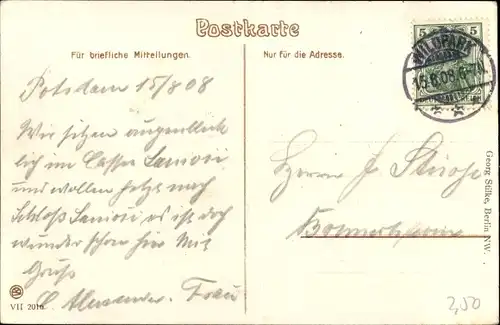 Postkarte
Für briefliche Mitteilungen.
Nur für die Adresse.
5 5
WILDPARK
15.8.08.6-7
Potsdam 15/8 08
Wir sitzen augenblick
lich im Caffee Sanssouci
und wollen jetzt nach
Schloß Sanssouci es ist doch
wunderschön hier Mit
Gruß
Alexander Frau
Herrn J
Georg Stilke, Berlin NW.
VII 2016
2,50